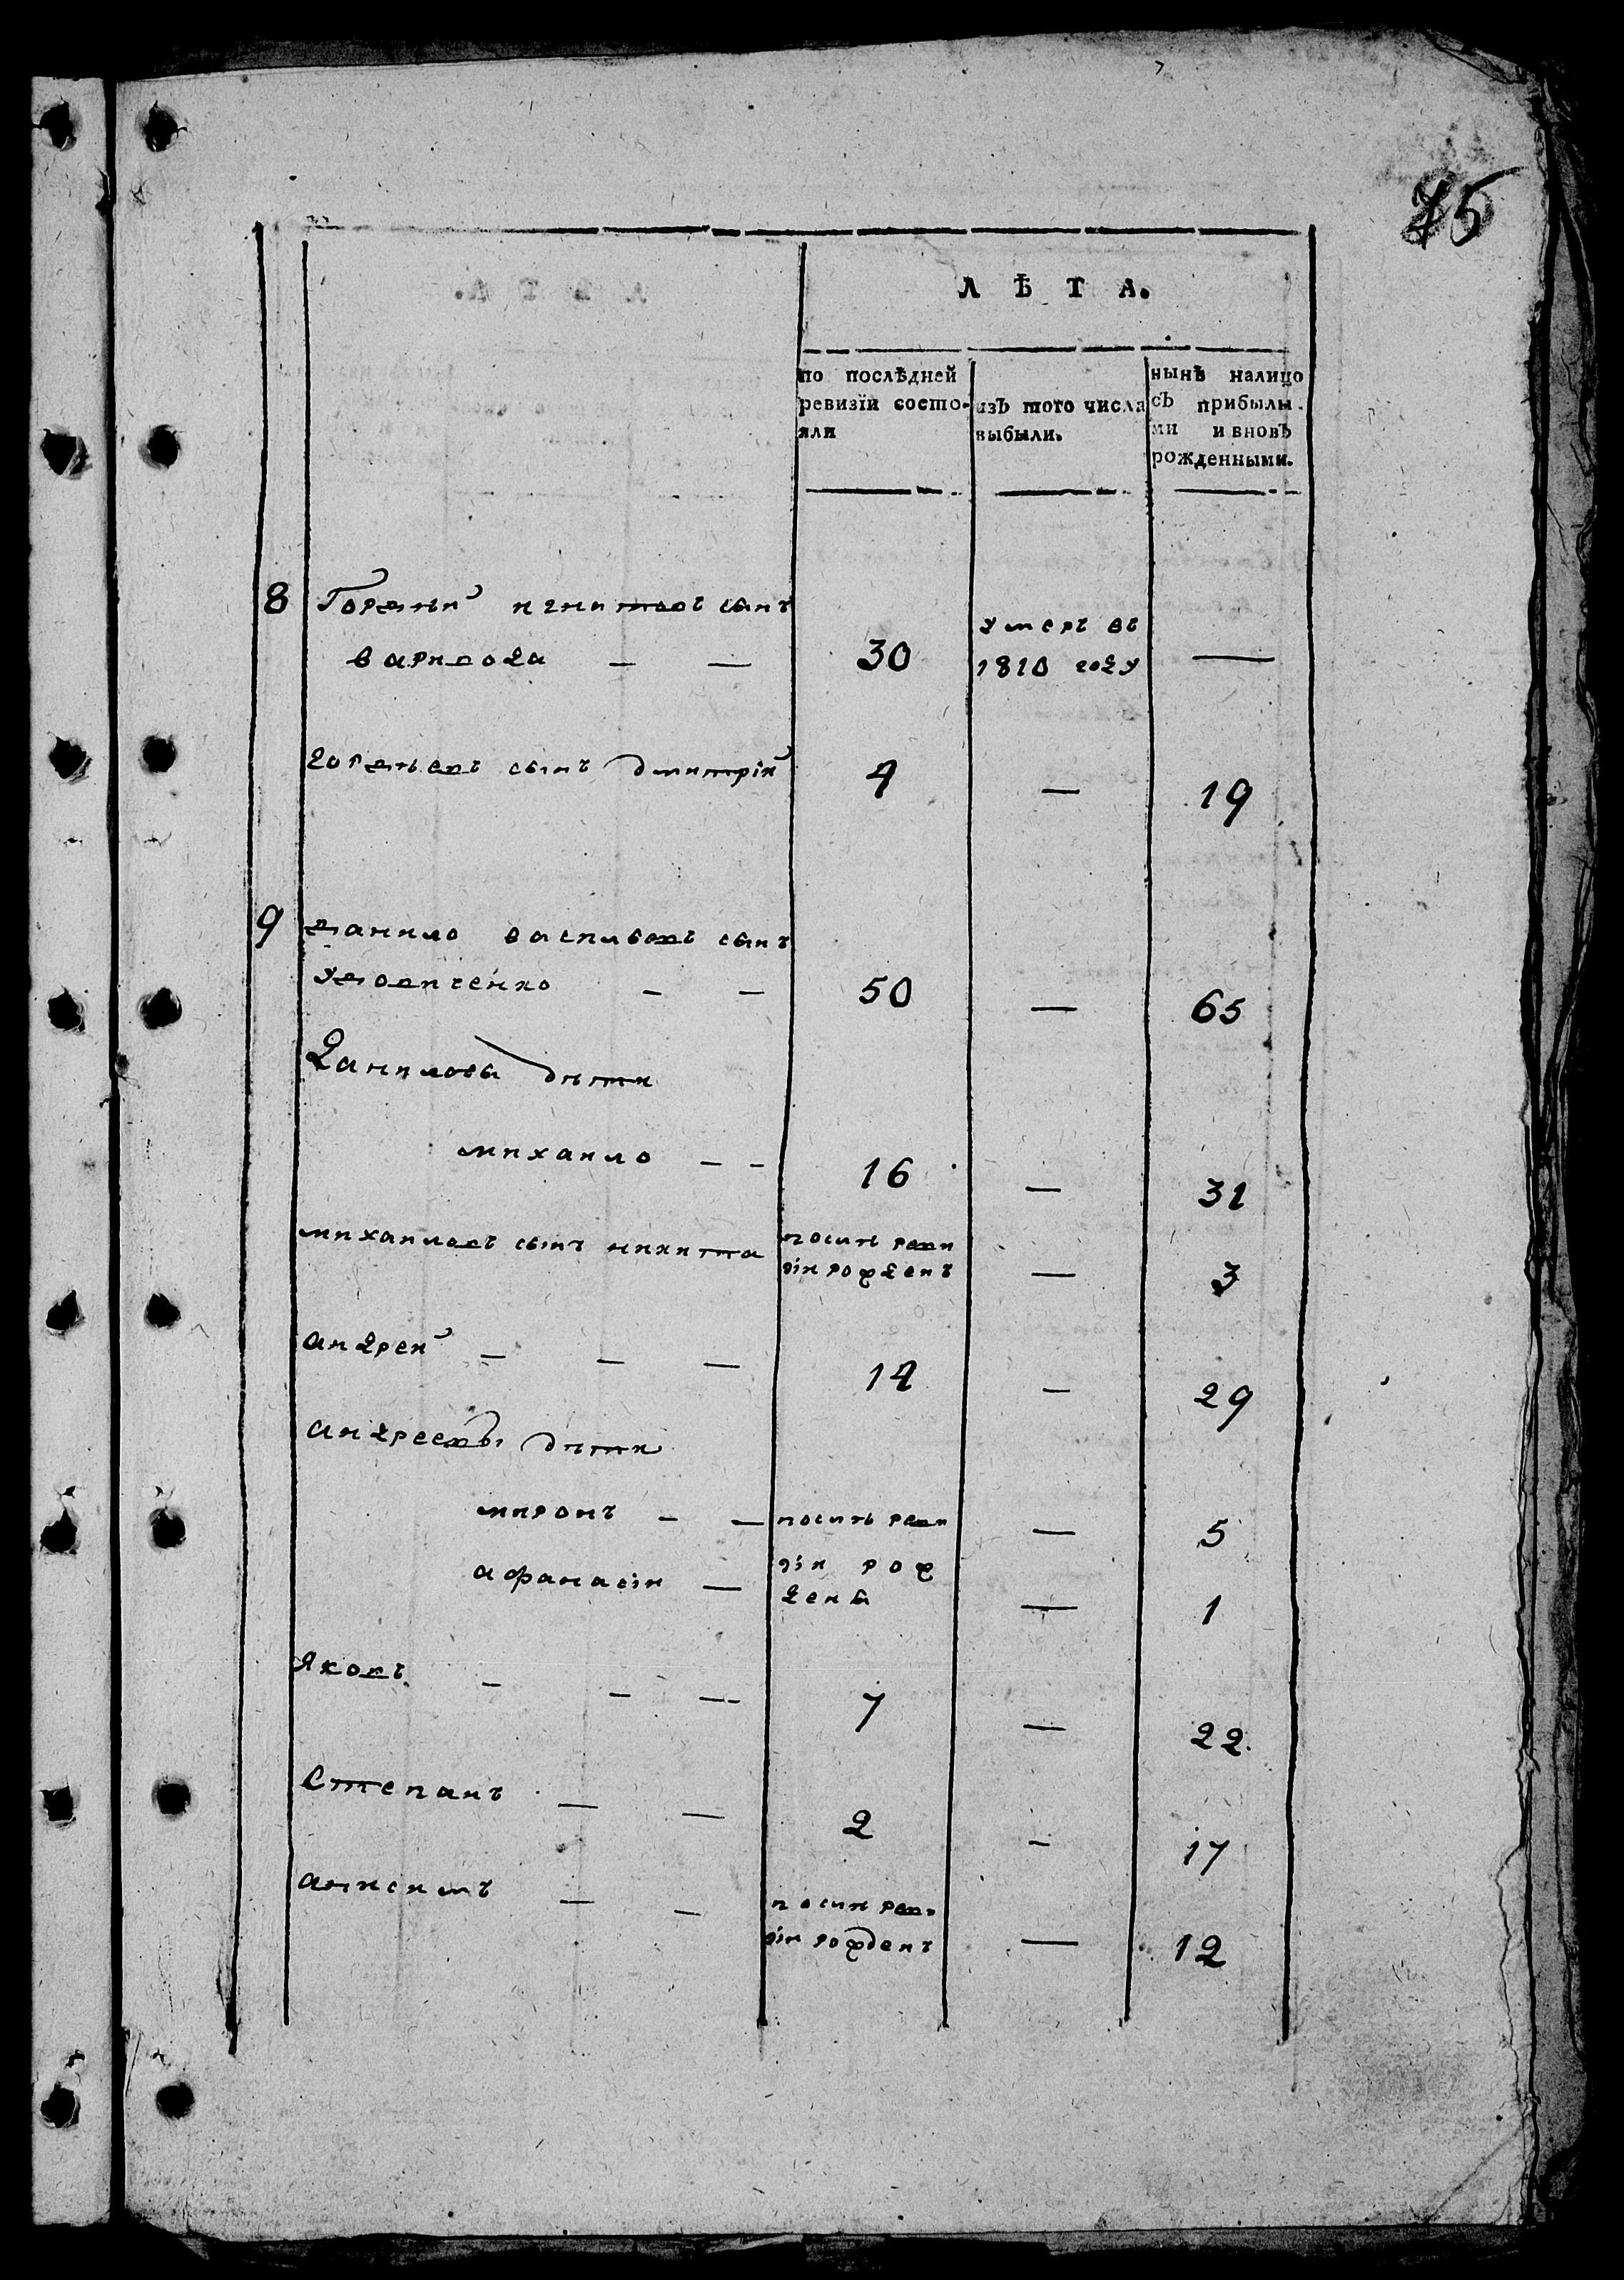 75
ЛѢТА.
по послѣдней
ревизіи состо-
яли
изъ того числа
выбыли.
нынѣ налицо
съ прибылы.
ми и вновь
рожденными.
8 Гордѣй игнатовъ сынъ
умеръ въ
30 1810 году —
гордѣевъ сынъ дмитрій 4 — 19
9 данило васильевъ сынъ
— — 50 — 65
Даниловы дѣти
михаило — — 16 — 31
михаиловъ сынъ никита послѣ реви
зіи рожденъ — 3
андрей — — — 14 — 29
андреевы дѣти
миронъ — — послѣ реви — 5
афанасіи — зіи рож
дены — 1
Яковъ — — — 7 — 22
Степанъ — — 2 — 17
анисимъ — — послѣ реви
зіи рожденъ — 12